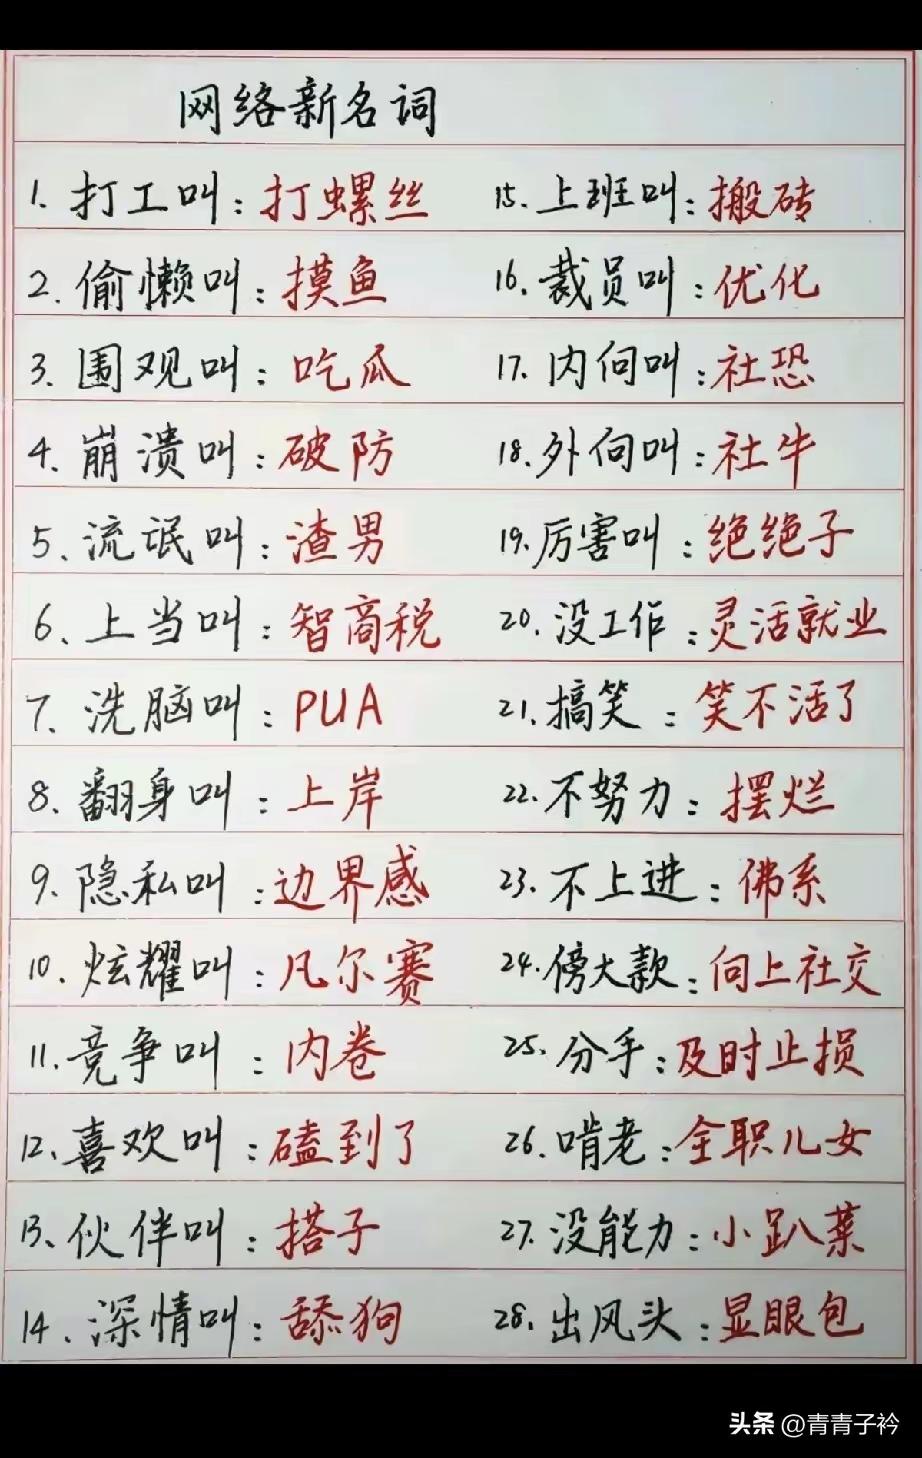 网络新名词
1. 打工叫：打螺丝
2. 偷懒叫：摸鱼
3. 围观叫：吃瓜
4. 崩溃叫：破防
5. 流氓叫：渣男
6. 上当叫：智商税
7. 洗脑叫：PUA
8. 翻身叫：上岸
9. 隐私叫：边界感
10. 炫耀叫：凡尔赛
11. 竞争叫：内卷
12. 喜欢叫：磕到了
13. 伙伴叫：搭子
14. 深情叫：舔狗
15. 上班叫：搬砖
16. 裁员叫：优化
17. 内向叫：社恐
18. 外向叫：社牛
19. 厉害叫：绝绝子
20. 没工作：灵活就业
21. 搞笑：笑不活了
22. 不努力：摆烂
23. 不上进：佛系
24. 傍大款：向上社交
25. 分手：及时止损
26. 啃老：全职儿女
27. 没能力：小趴菜
28. 出风头：显眼包
头条 @青青子衿